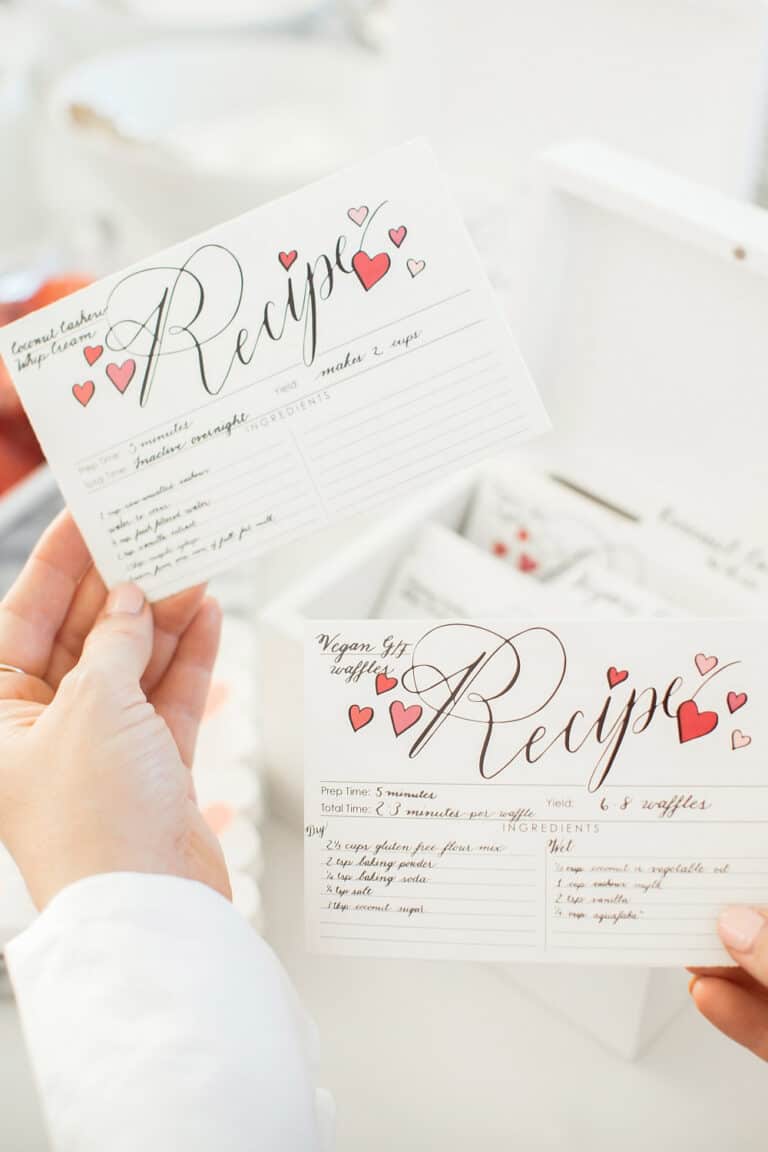 Coconut Cashew
Whip Cream
Recipe
Prep Time: 5 minutes
Yield: makes 2 cups
Total Time: Inactive overnight
INGREDIENTS
1 cup raw unsalted cashews
water to cover
fresh filtered water
1 tsp vanilla extract
maple syrup
from one can of full fat milk
Vegan G/F
waffles
Recipe
Prep Time: 5 minutes
Total Time: 2-3 minutes per waffle
Yield: 6-8 waffles
INGREDIENTS
Dry
cups gluten free flour mix
2 tsp baking powder
tsp baking soda
tsp salt
1 tbsp coconut sugar
Wet
cup coconut or vegetable oil
1 cup cashew mylk
2 tsp vanilla
cup aquafaba